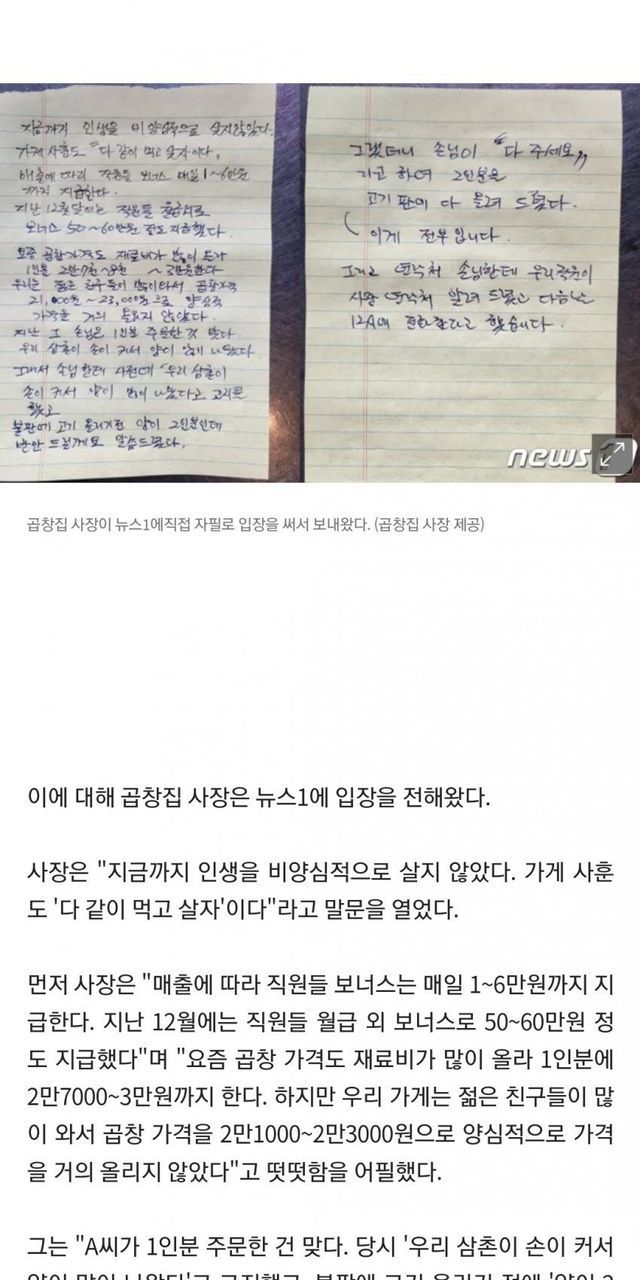 지금까지 인생을 비양심적으로 살지않았다.
가게 사훈도 "다 같이 먹고 살자"이다.
매출에 따라 직원들 보너스 매일 1~6만원
까지 지급한다.
지난 12월달에는 직원들 월급외로
보너스 50~60만원 정도 지급했다.
요즘 곱창가격도 재료비가 많이 올라
1인분 2만7천~
우리는 젊은 친구들이 많이와서 곱창가격
21,000원~23,000원으로 양심적
가격을 거의 올리지 않았다.
지난 그 손님은 1인분 주문한것 맞다
우리 삼촌이 손이 커서 양이 많이 나왔다
그래서 손님한테 사전에 "우리 삼촌이
손이 커서 양이 많이 나왔다고 고지를
했고
불판에 고기 올리기전 양이 2인분인데
반만 드릴까요 말씀드렸다.
그랬더니 손님이 "다 주세요"
라고 하여 2인분을
고기 판에 다 올려 드렸다.
이게 전부입니다.
그리고 연락처 손님한테 우리직원이
사장 연락처 알려 드렸고 다음날
12시에 전화준다고 했습니다.
news
곱창집 사장이 뉴스1에직접 자필로 입장을 써서 보내왔다. (곱창집 사장 제공)
이에 대해 곱창집 사장은 뉴스1에 입장을 전해왔다.
사장은 "지금까지 인생을 비양심적으로 살지 않았다. 가게 사훈
도 '다 같이 먹고 살자'이다"라고 말문을 열었다.
먼저 사장은 "매출에 따라 직원들 보너스는 매일 1~6만원까지 지
급한다. 지난 12월에는 직원들 월급 외 보너스로 50~60만원 정
도 지급했다"며 "요즘 곱창 가격도 재료비가 많이 올라 1인분에
2만7000~3만원까지 한다. 하지만 우리 가게는 젊은 친구들이 많
이 와서 곱창 가격을 2만1000~2만3000원으로 양심적으로 가격
을 거의 올리지 않았다"고 떳떳함을 어필했다.
그는 "A씨가 1인분 주문한 건 맞다. 당시 '우리 삼촌이 손이 커서